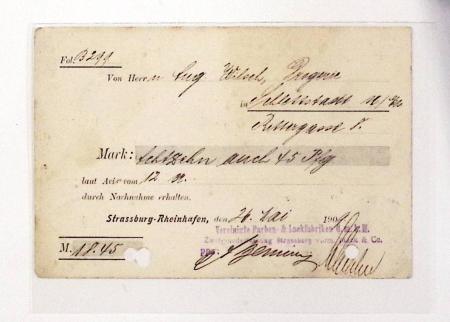 Fol. B299
Von Herrn Eug
in Schlettstadt
Rittergasse
Mark: Achtzehn auch 45 Pfg
laut Avis vom 12 
durch Nachnahme erhalten.
Strassburg-Rheinhafen, den 26. Mai 190
Vereinigte Farben- & Lackfabriken G.m.b.H.
Zweigniederlassung Strassburg vorm. & Co.
M. 18.45
PPA.